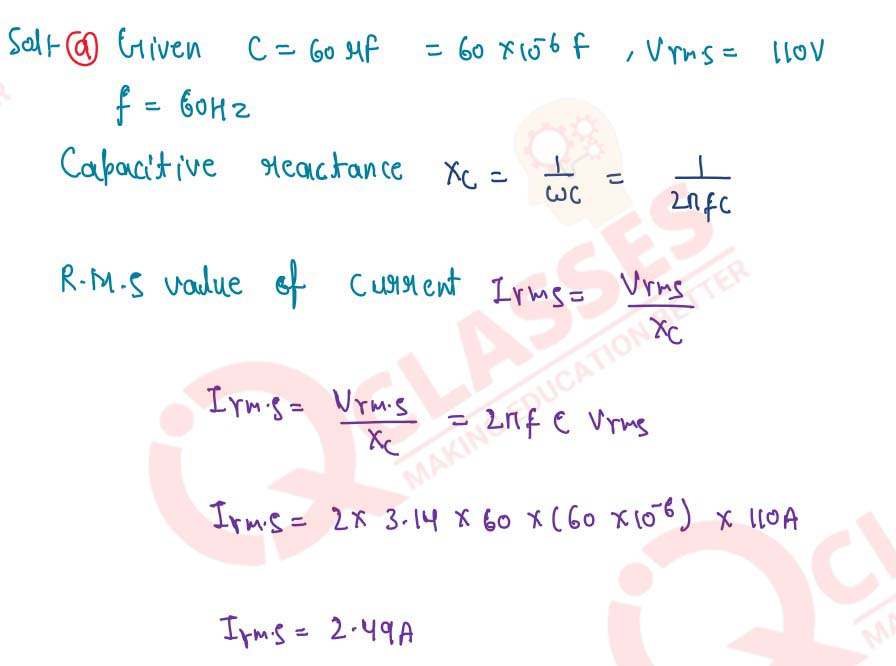 Sol:- (a) Given C = 60 μf = 60 × 10⁻⁶ f , Vrms = 110V
f = 60Hz
Capacitive reactance Xc = 1/ωC = 1/2πfC
R.M.S value of current Irms = Vrms/Xc
Irm.s = Vrm.s/Xc = 2πf C Vrms
Irm.s = 2 × 3.14 × 60 × (60 × 10⁻⁶) × 110A
Irm.s = 2.49A
IQ CLASSES
MAKING EDUCATION BETTER